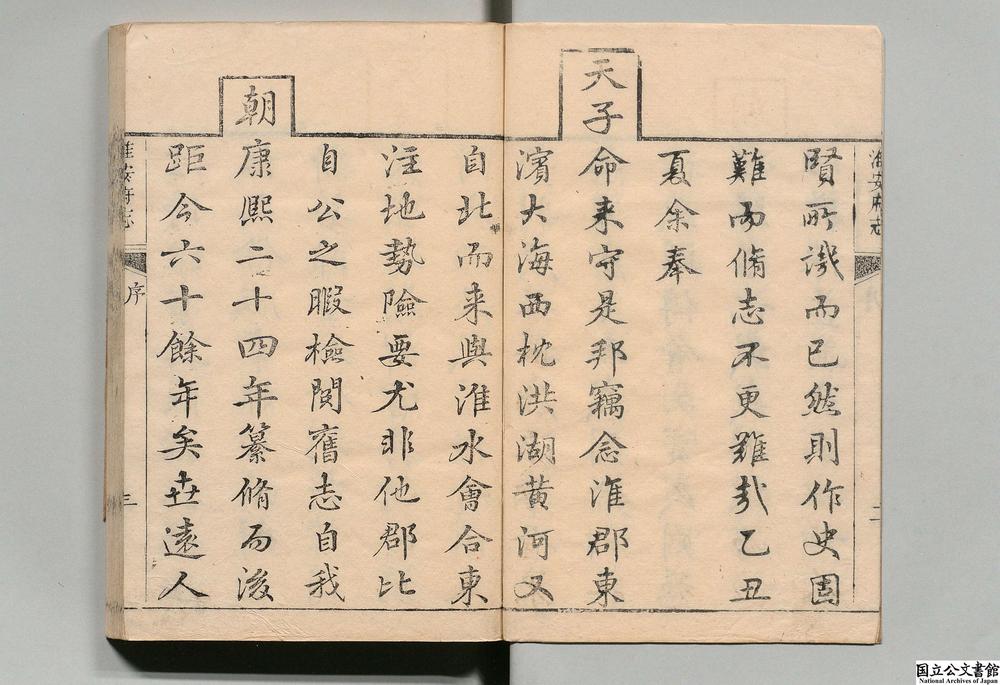 淮安府志
二
賢所譏而已然則作史固
難而脩志不更難哉乙丑
夏余奉
天子
命来守是邦竊念淮郡東
濱大海西枕洪湖黄河又
自北而来與淮水會合東
注地勢險要尤非他郡比
自公之暇檢閲舊志自我
朝
康熙二十四年纂脩而後
距今六十餘年矣世遠人
淮安府志
序
三
国立公文書館
National Archives of Japan